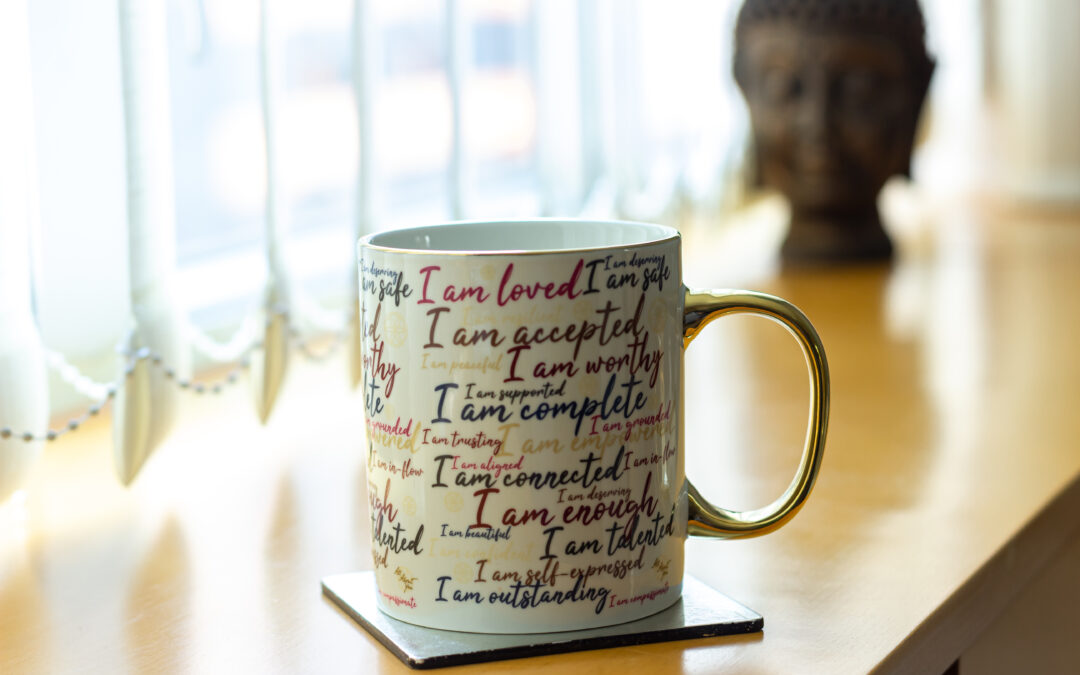 I am deserving
I am safe
I am loved
I am deserving
I am safe
I am resilient
I am accepted
I am peaceful
I am worthy
worthy
I am supported
I am complete
I am grounded
I am trusting
I am empowered
I am grounded
I am in-flow
I am aligned
I am connected
I am in-flow
I am deserving
I am enough
I am beautiful
I am talented
talented
I am confident
I am self-expressed
I am outstanding
I am compassionate
compassionate